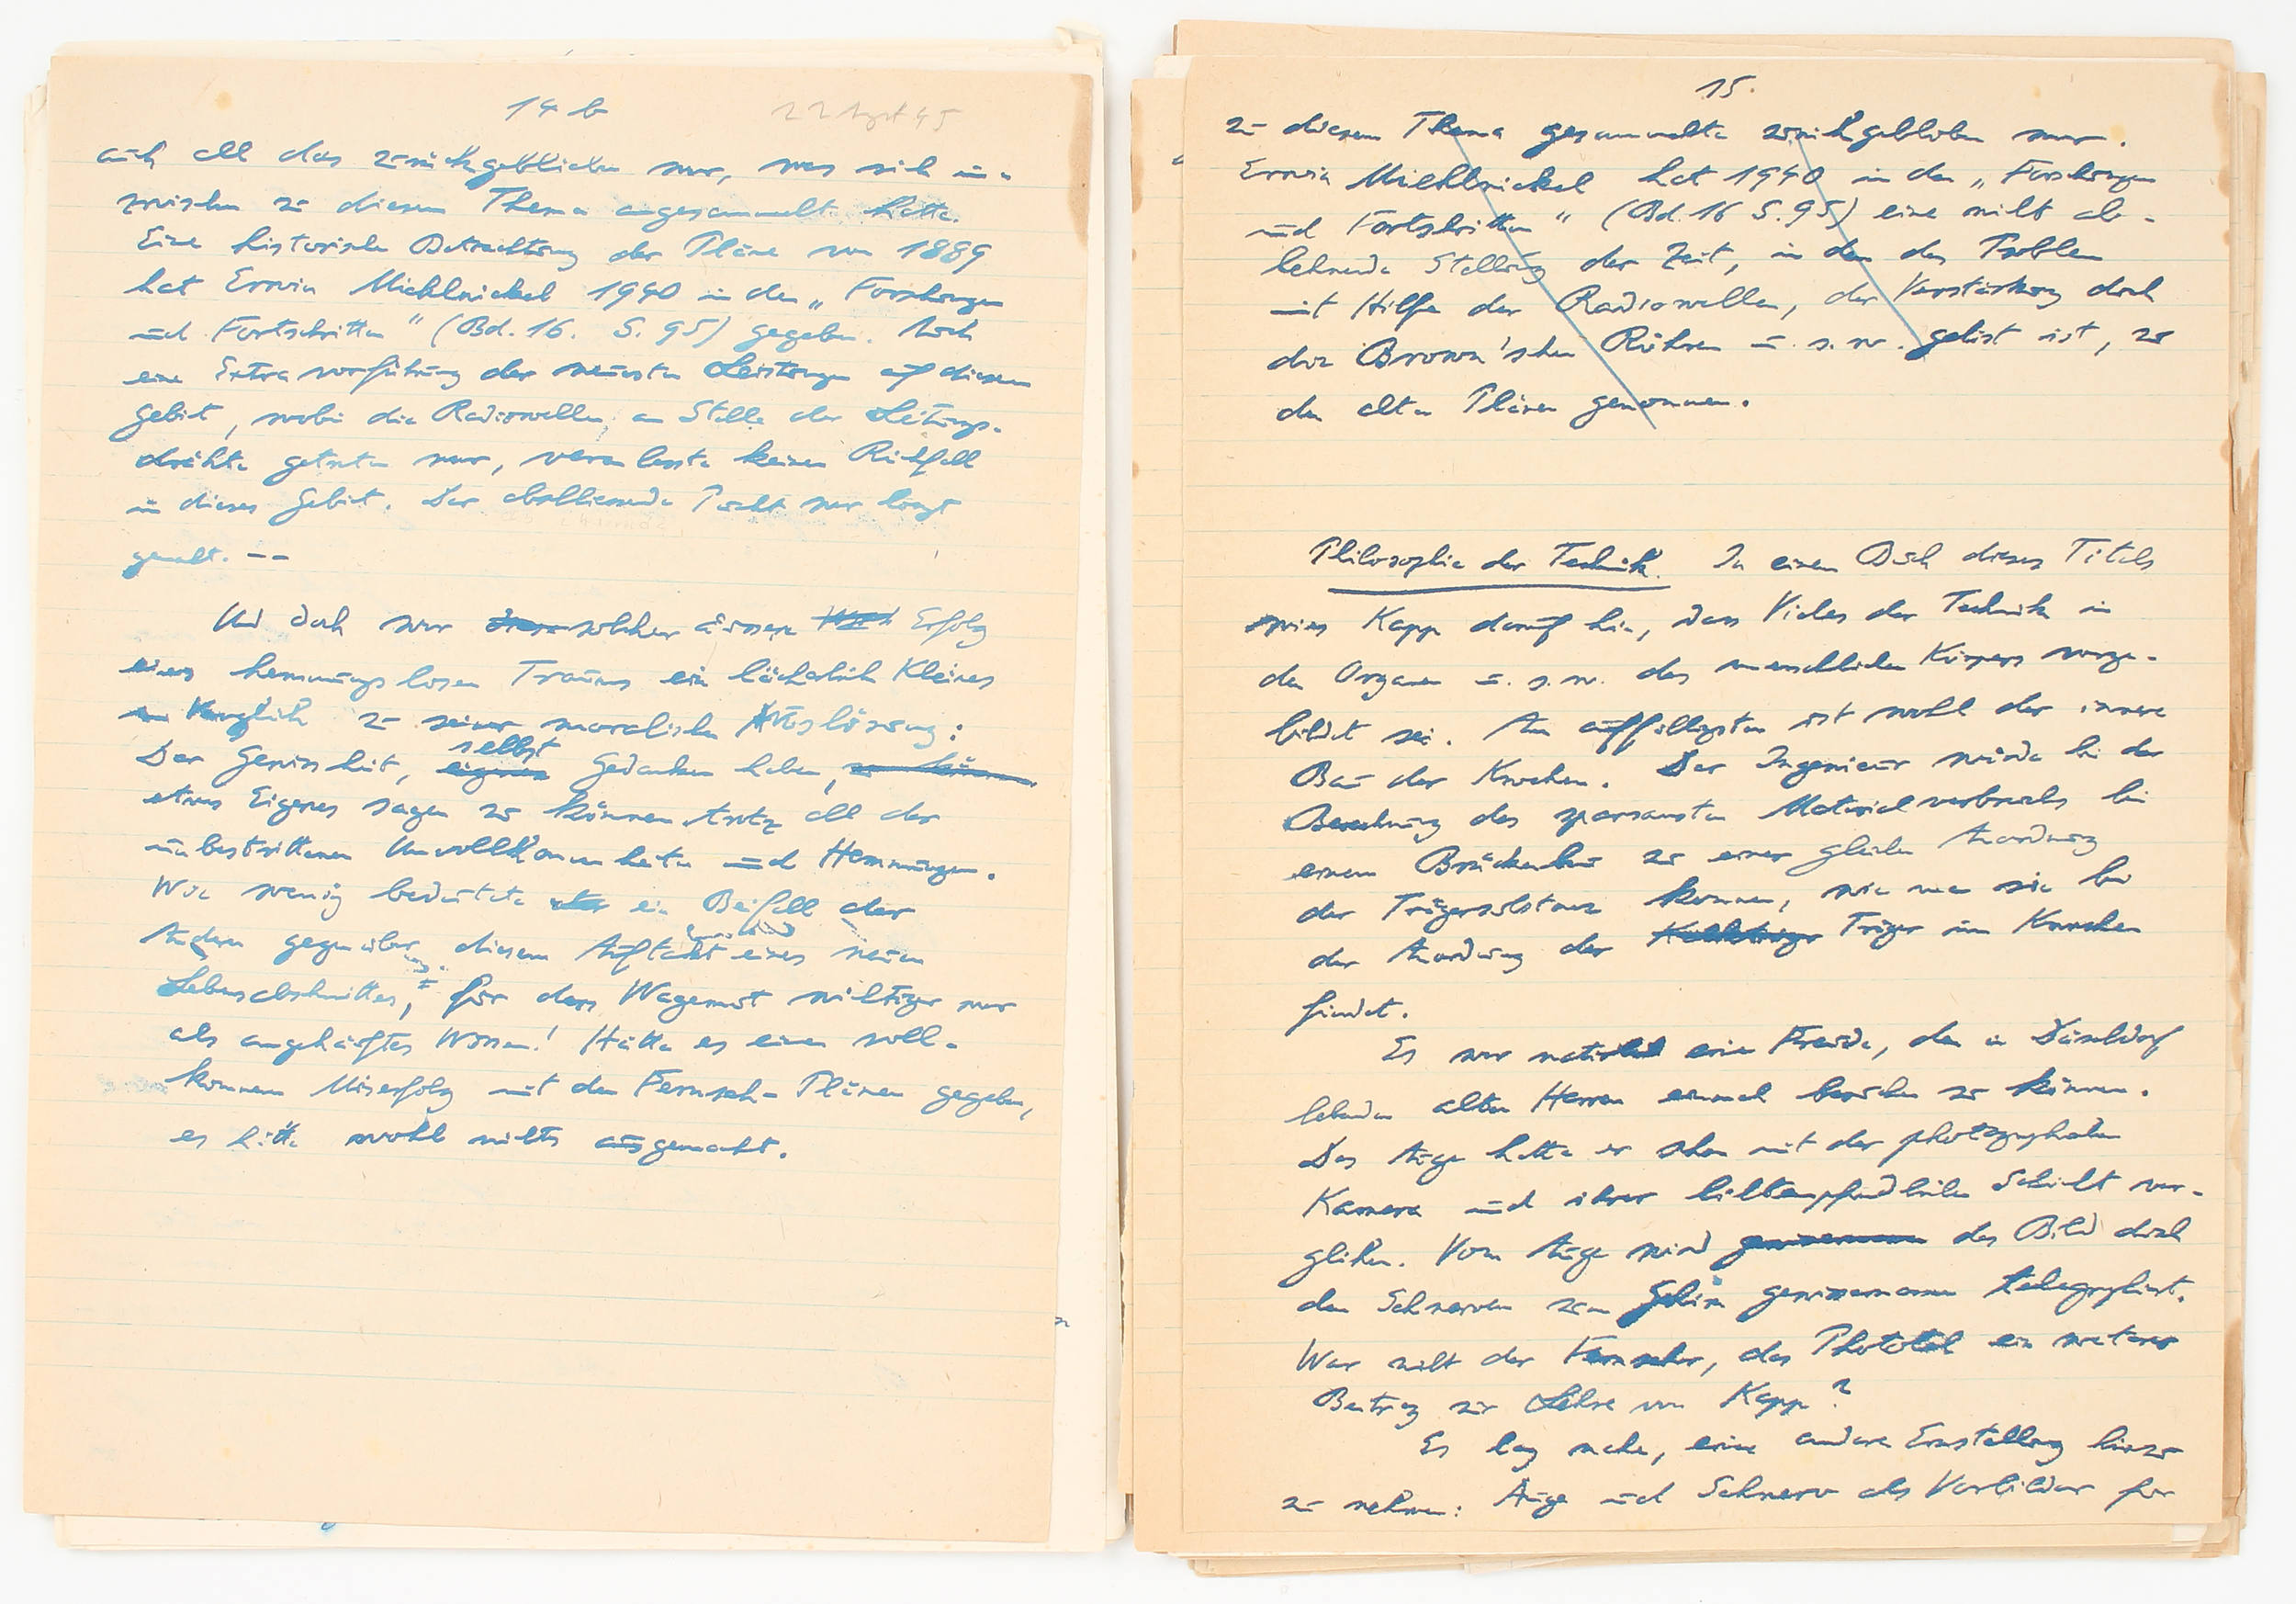 14 b
22 Aug 45
auch all das zurückgeblieben war, was sich in-
zwischen zu diesem Thema angesammelt hatte.
Eine historische Betrachtung der Pläne von 1889
hat Erwin Michelnickel 1940 in den „Forschungen
und Fortschritten" (Bd. 16. S. 95) gegeben. Auch
eine Extravorführung der neuesten Leistungen auf diesem
Gebiet, wobei die Radiowellen an Stelle der Leitungs-
drähte getreten war, veranlasste keinen Rückfall
in dieses Gebiet. Der abschliessende Punkt war längst
gemacht. --
Und doch war solcher äussere Erfolg
eines hemmungslosen Traums ein lächerlich Kleines
Vergleich zu seiner moralischen Auslösung:
Der Gewissheit, selbst Gedanken haben,
etwas Eigenes sagen zu können trotz all der
unbestrittenen Unvollkommenheiten und Hemmungen.
Wie wenig bedeutete ein Beifall der
Andern gegenüber diesem Auftakt eines neuen
Lebensabschnittes, für den Wagemut wichtiger war
als angehäuftes Wissen! Hätte es einen voll-
kommenen Misserfolg mit den Fernseh-Plänen gegeben,
es hätte wohl nichts ausgemacht.
15.
zu diesem Thema gesammelte zurückgeblieben war.
Erwin Michelnickel hat 1940 in den „Forschungen
und Fortschritten" (Bd. 16 S. 95) eine nicht ab-
lehnende Stellung der Zeit, in der das Problem
mit Hilfe der Radiowellen, der Verstärkung durch
die Braun'schen Röhren u.s.w. gelöst ist, zu
den alten Plänen genommen.
Philosophie der Technik. In einem Buch dieses Titels
wies Kapp darauf hin, dass Vieles der Technik in
den Organen u.s.w. des menschlichen Körpers vorge-
bildet sei. Am auffälligsten ist wohl der innere
Bau der Knochen. Der Ingenieur würde bei der
Berechnung des sparsamsten Materialverbrauchs bei
einem Brückenbau zu einer gleichen Anordnung
der Trägersubstanz kommen, wie man sie bei
der Anordnung der Träger im Knochen
findet.
Es war natürlich eine Freude, den in Düsseldorf
lebenden alten Herren einmal besuchen zu können.
Das Auge hatte er schon mit der photographischen
Kamera und ihrer lichtempfindlichen Schicht ver-
glichen. Vom Auge wird das Bild durch
den Sehnerven zum Gehirn gewissermassen telegraphiert.
War nicht der Fernseher, das Phototel ein weiterer
Beitrag zur Lehre von Kapp?
Es lag nahe, eine andere Einstellung hinzu
zu nehmen: Auge und Sehnerv als Vorbilder für